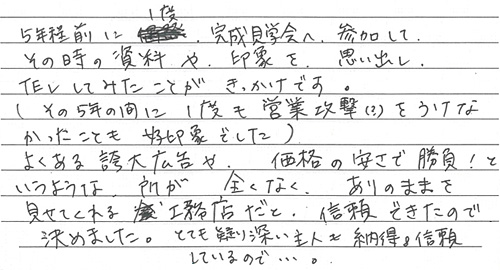 5年程前に1度、完成見学会へ、参加して、
その時の資料や、印象を、思い出し、
TELしてみたことがきっかけです。
(その5年の間に1度も営業攻撃(?)をうけな
かったことも好印象でした)
よくある誇大広告や、価格の安さで勝負!と
いうような、所が全くなく、ありのままを
見せてくれる工務店だと、信頼できたので
決めました。とても疑り深い主人も納得&信頼
しているので…。